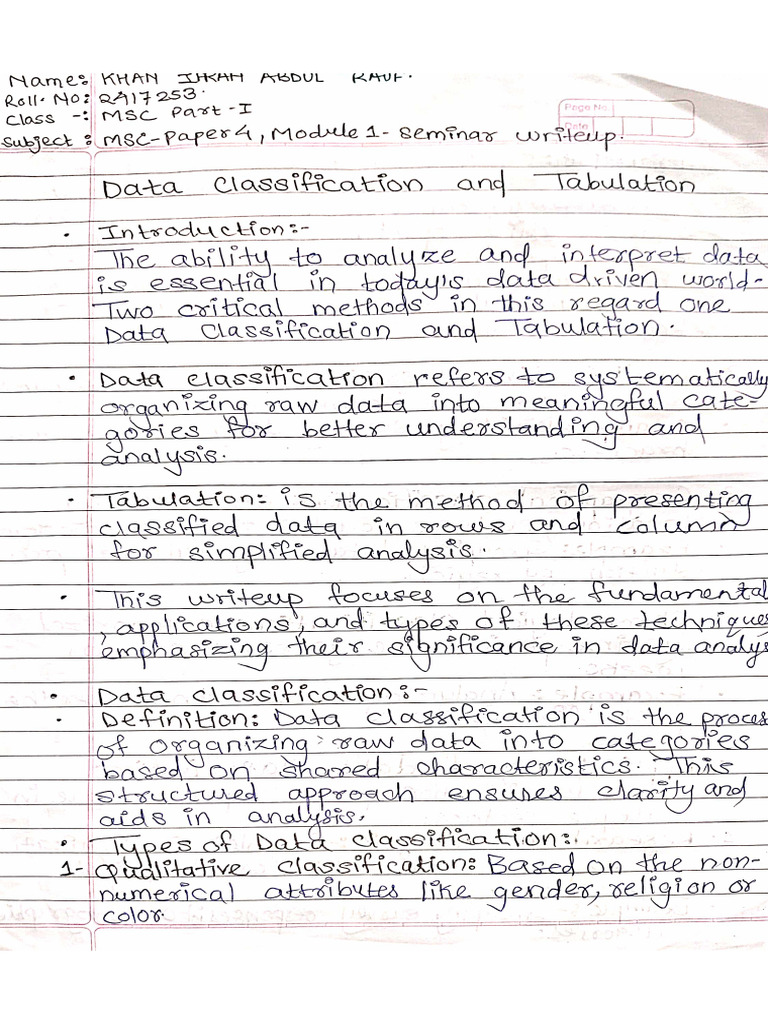 Name: KHAN IHKAM ABDUL RAUF.
Roll. No: 2417253.
Class -: MSC Part-I
Subject: MSC-Paper 4, Module 1- Seminar writeup.
Page No.
Date
Data Classification and Tabulation
• Introduction:-
The ability to analyze and interpret data
is essential in today's data driven world-
Two critical methods in this regard one
Data Classification and Tabulation.
• Data classification refers to systematically
organizing raw data into meaningful cate-
gories for better understanding and
analysis.
• Tabulation: is the method of presenting
classified data in rows and column
for simplified analysis.
• This writeup focuses on the fundamental
, applications, and types of these techniques
emphasizing their significance in data analys
• Data classification:-
• Definition: Data classification is the proces
of organizing raw data into categories
based on shared characteristics. This
structured approach ensures clarity and
aids in analysis.
• Types of Data classification:
1- Qualitative classification: Based on the non-
numerical attributes like gender, religion or
color.